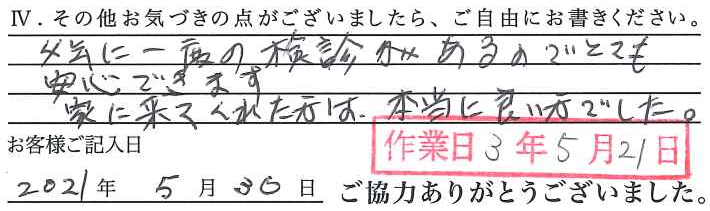 Ⅳ．その他お気づきの点がございましたら、ご自由にお書きください。
年に一度の検診があるのでとても
安心できます
家に来てくれた方は、本当に良い方でした。
お客様ご記入日
作業日3年5月21日
2021年 5月30日 ご協力ありがとうございました。